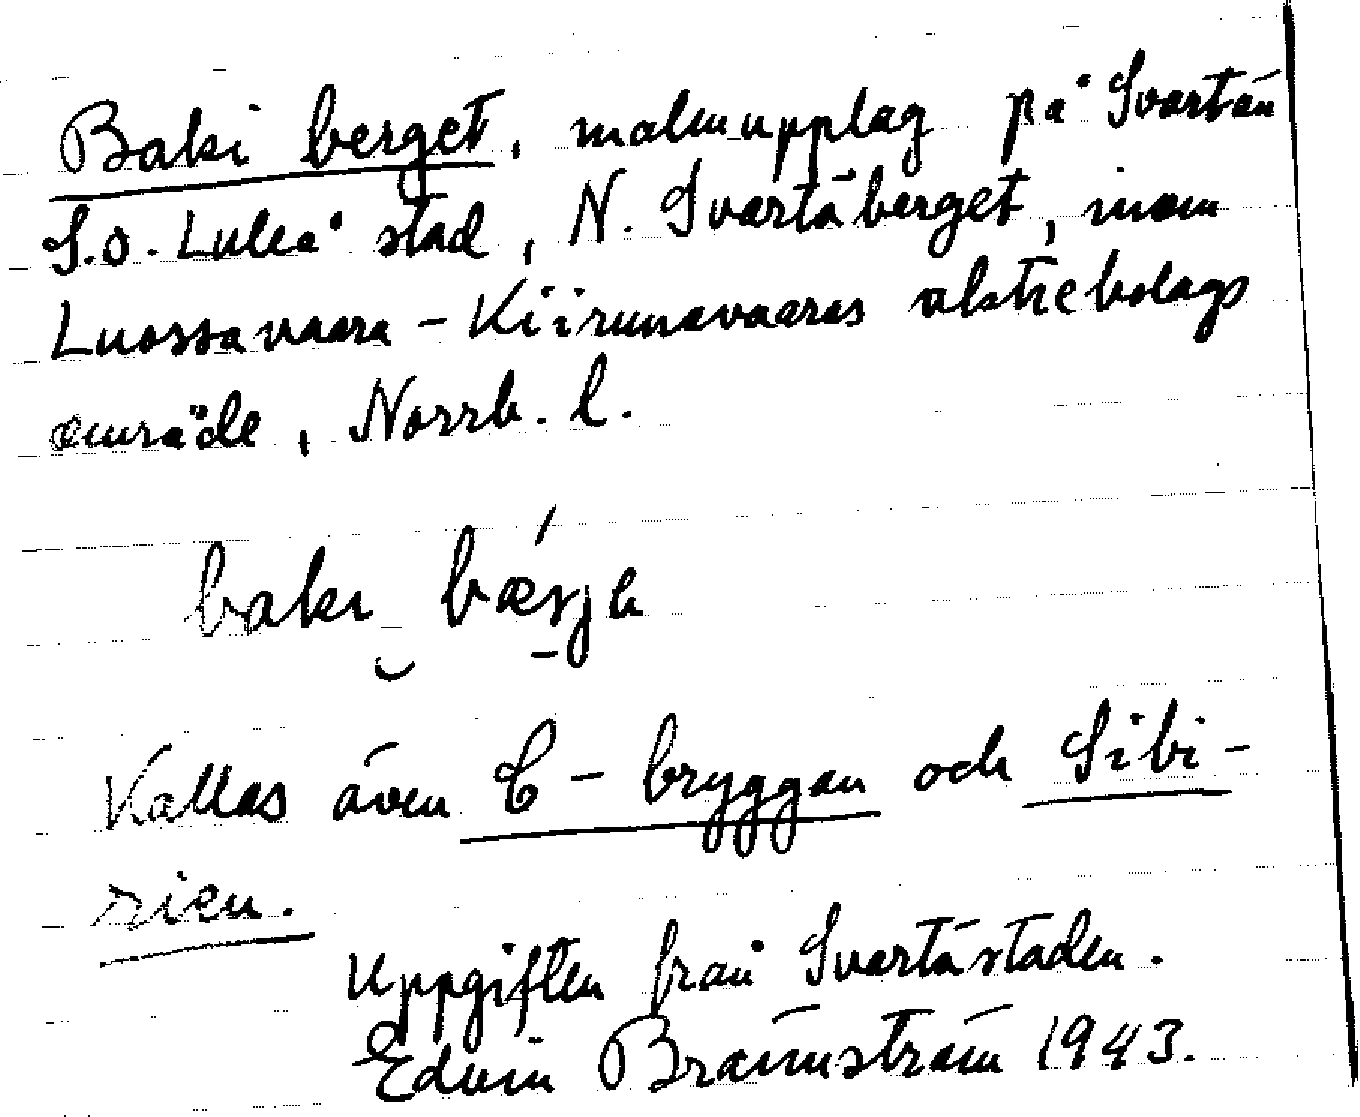 Baki berget, malmupplag på Svartön
S.o. Luleå stad, N. Svartöberget, inom
Luossavaara-Kiirunavaaras aktiebolags
område, Norrb. l.
baki bærje
Kallas även C-bryggan och Sibi-
rien.
Uppgiften från Svartöstaden.
Edvin Brännström 1943.